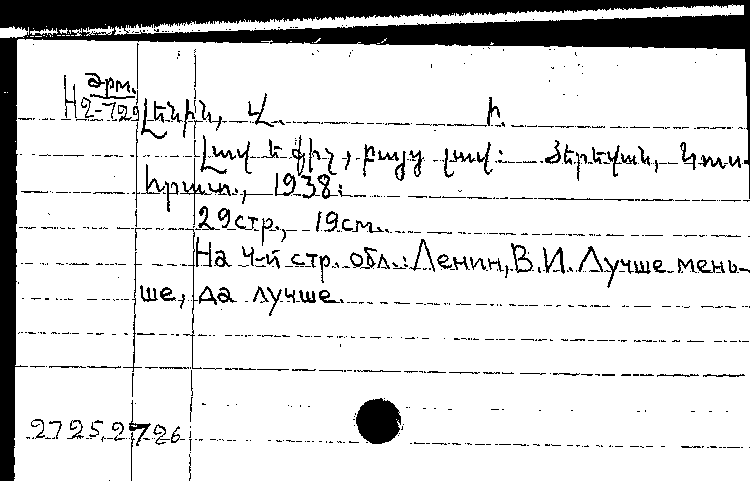 Әрм.
H2-729
Լենին, Վ. Ի.
Լավ ե քիչ, բայց լավ: Յերեվան, Կուս-
հրատ., 1938:
29стр., 19см.
На 4-й стр. обл.: Ленин, В.И. Лучше мень-
ше, да лучше.
2725.2726